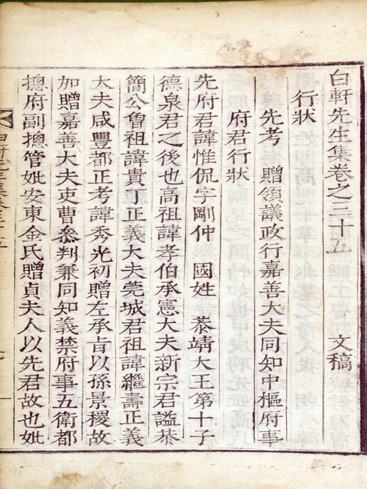 白軒先生集卷之三十五 文稿
行狀
先考 贈領議政行嘉善大夫同知中樞府事
府君行狀
先府君諱惟侃字剛仲 國姓 恭靖大王第十子
德泉君之後也高祖諱孝伯承憲大夫新宗君謚恭
簡公曾祖諱貴丁正義大夫莞城君祖諱繼壽正義
大夫咸豐都正考諱秀光初贈左承旨以孫景稷故
加贈嘉善大夫吏曹叅判兼同知義禁府事五衛都
摠府副摠管妣安東金氏贈貞夫人以先君故也妣